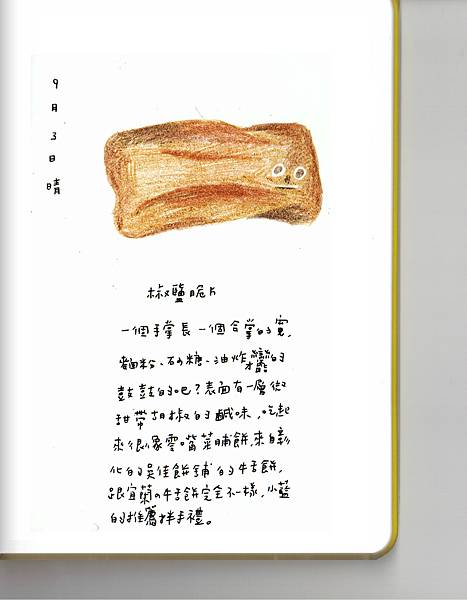 9月3日 晴
椒鹽脆片
一個手掌長 一個合掌的寬,
麵粉、砂糖、油炸變的
鼓鼓的吧?表面有一層微
甜帶胡椒的鹹味,吃起
來很像零嘴菜脯餅,來自彰
化的吳佳餅舖的牛舌餅,
跟宜蘭の牛舌餅完全不一樣,小藍
的推薦拌手禮。